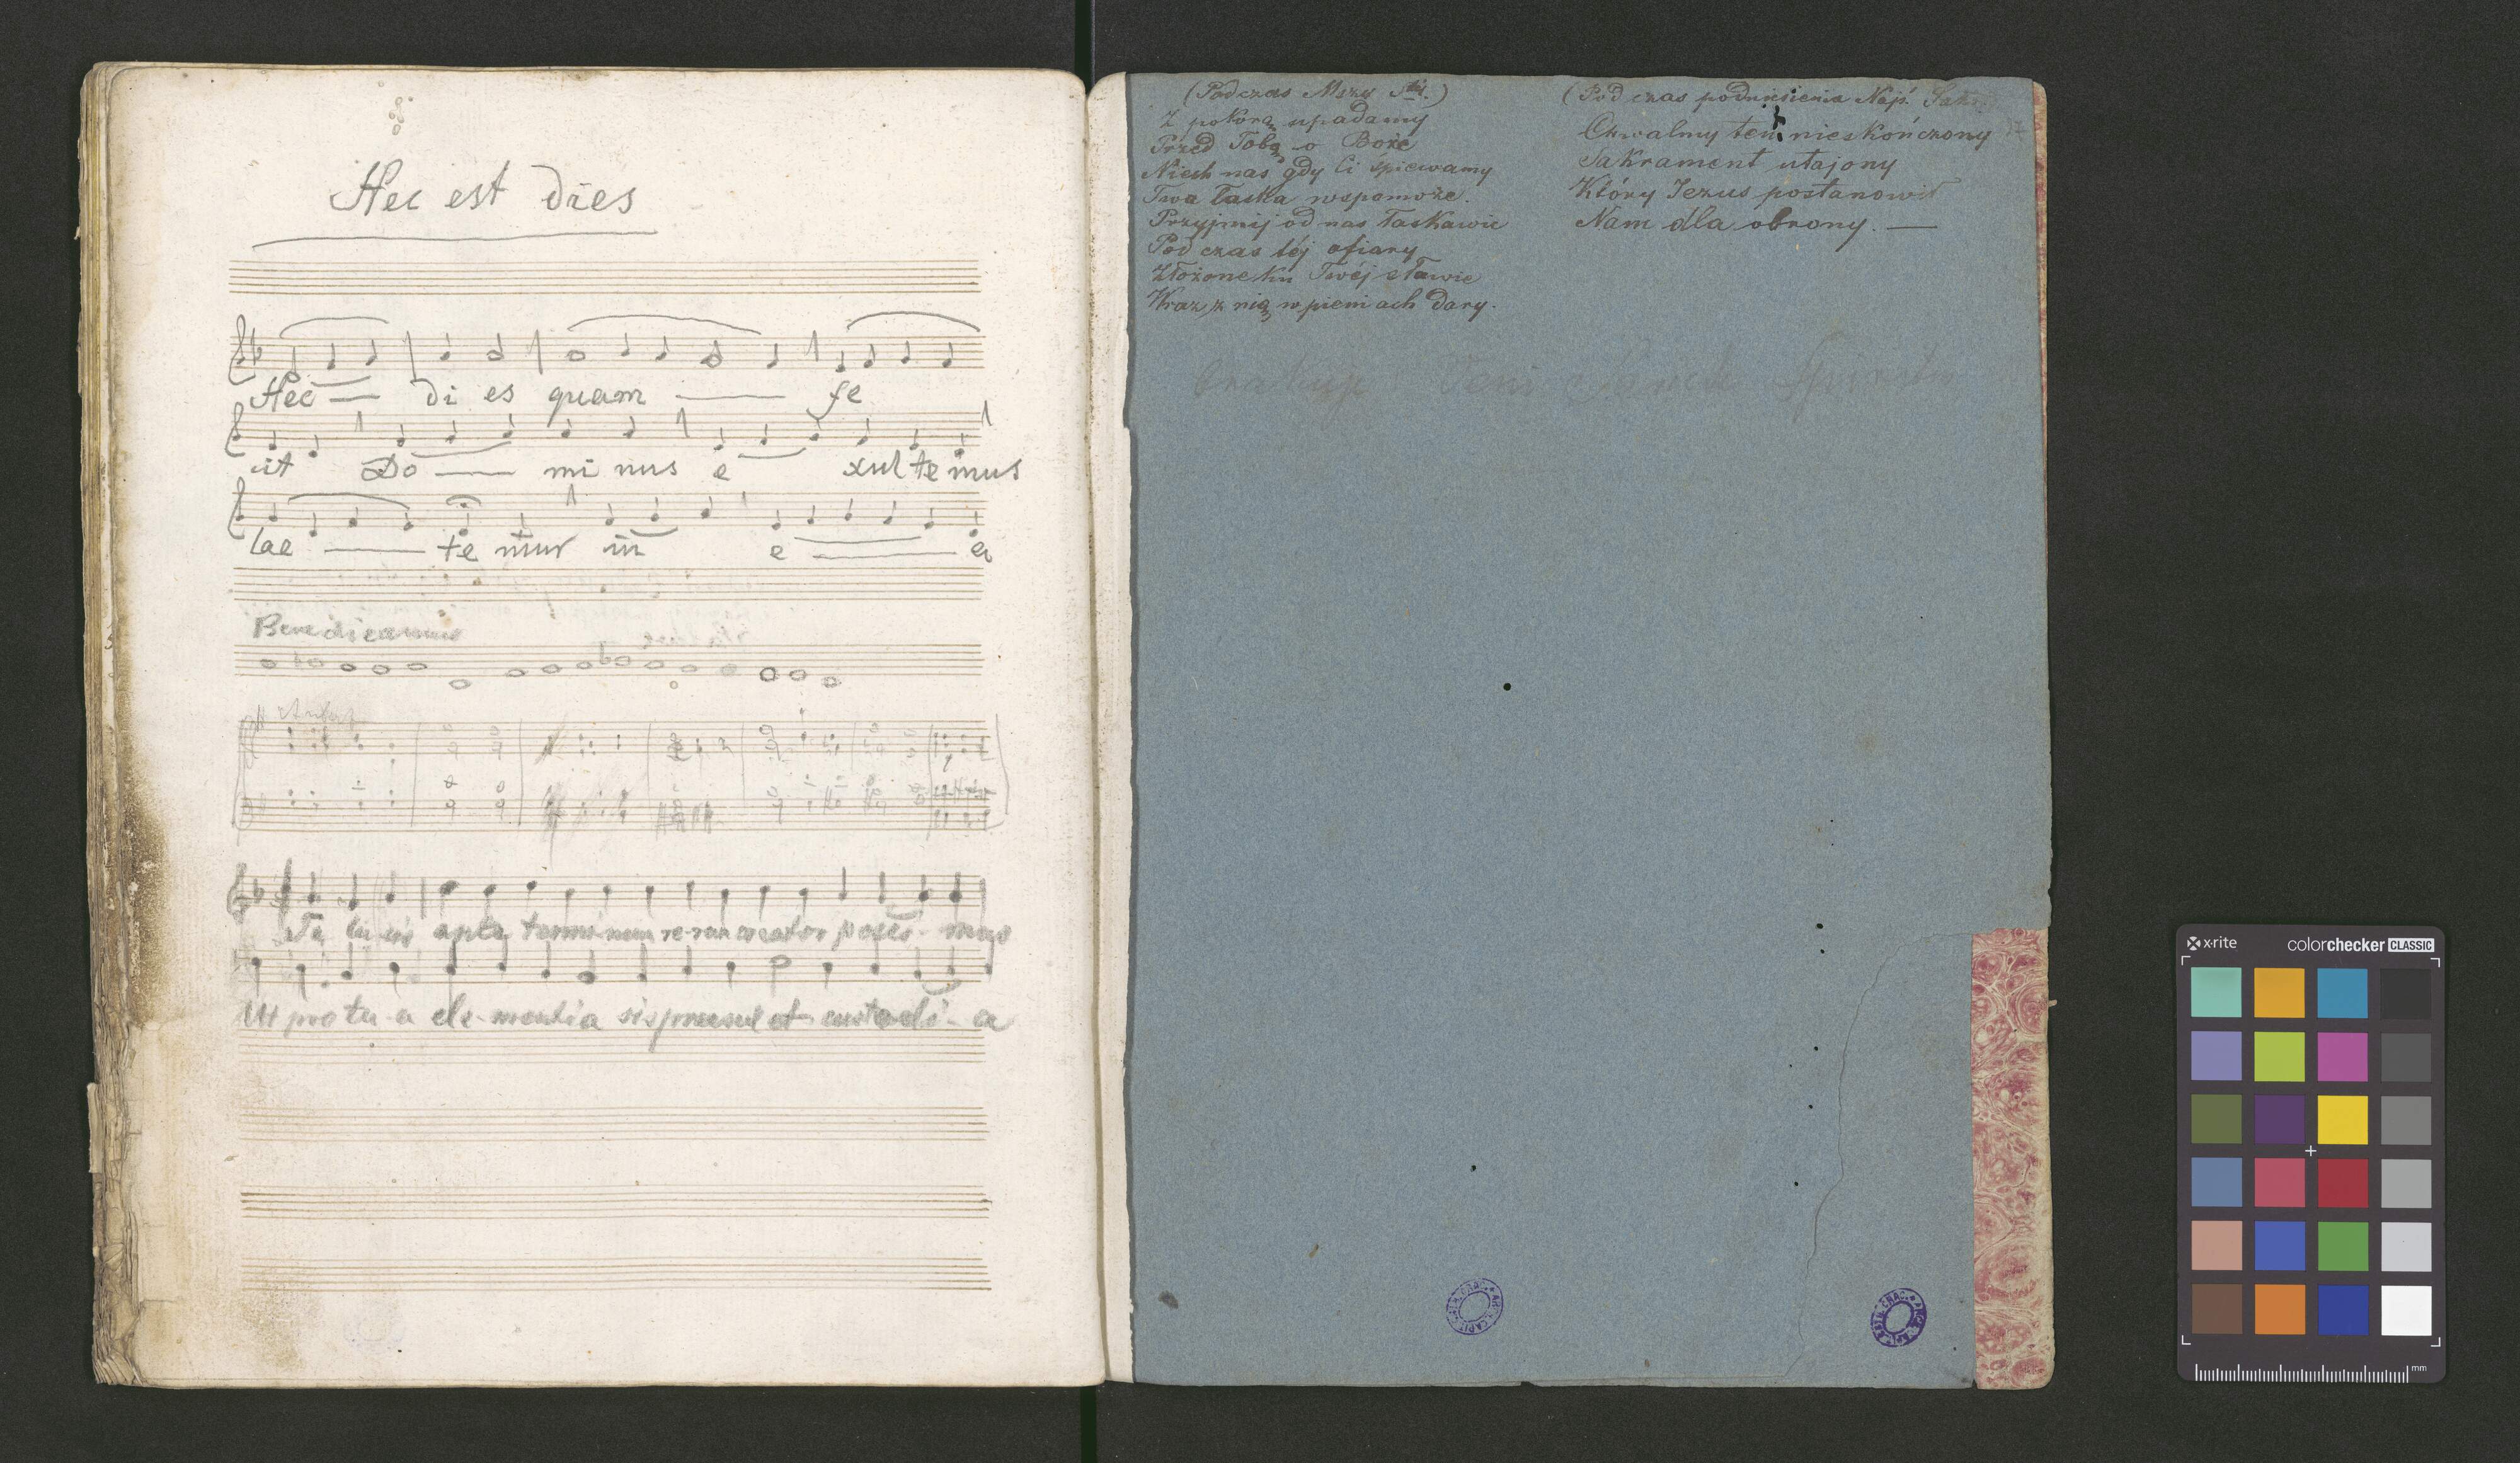 Hec est dies
Hec — di es quam — fe
cit Do — mi nus e xul te mus
lae — te mur in e — a
Benedicamus
Te lucis ante terminum re-rum creator posci-mus
Ut pro tu-a cle-mentia sis praesul et custodi-a
(Pod czas Mszy Stéj.)
Z pokorą upadamy
Przed Tobą o Boże
Niech nas gdy Ci śpiewamy
Twa łaska wspomoże.
Przyjmij od nas łaskawie
Pod czas téj ofiary
Złożone ku Twéj sławie
Wraz z nią w pieniach dary.
(Pod czas podniesienia Najś. Sakr
Chwalmy ten nieskończony
Sakrament utajony
Który Jezus postanowił
Nam dla obrony. —
brakuje Veni Sancte Spiritus
x-rite colorchecker CLASSIC
mm